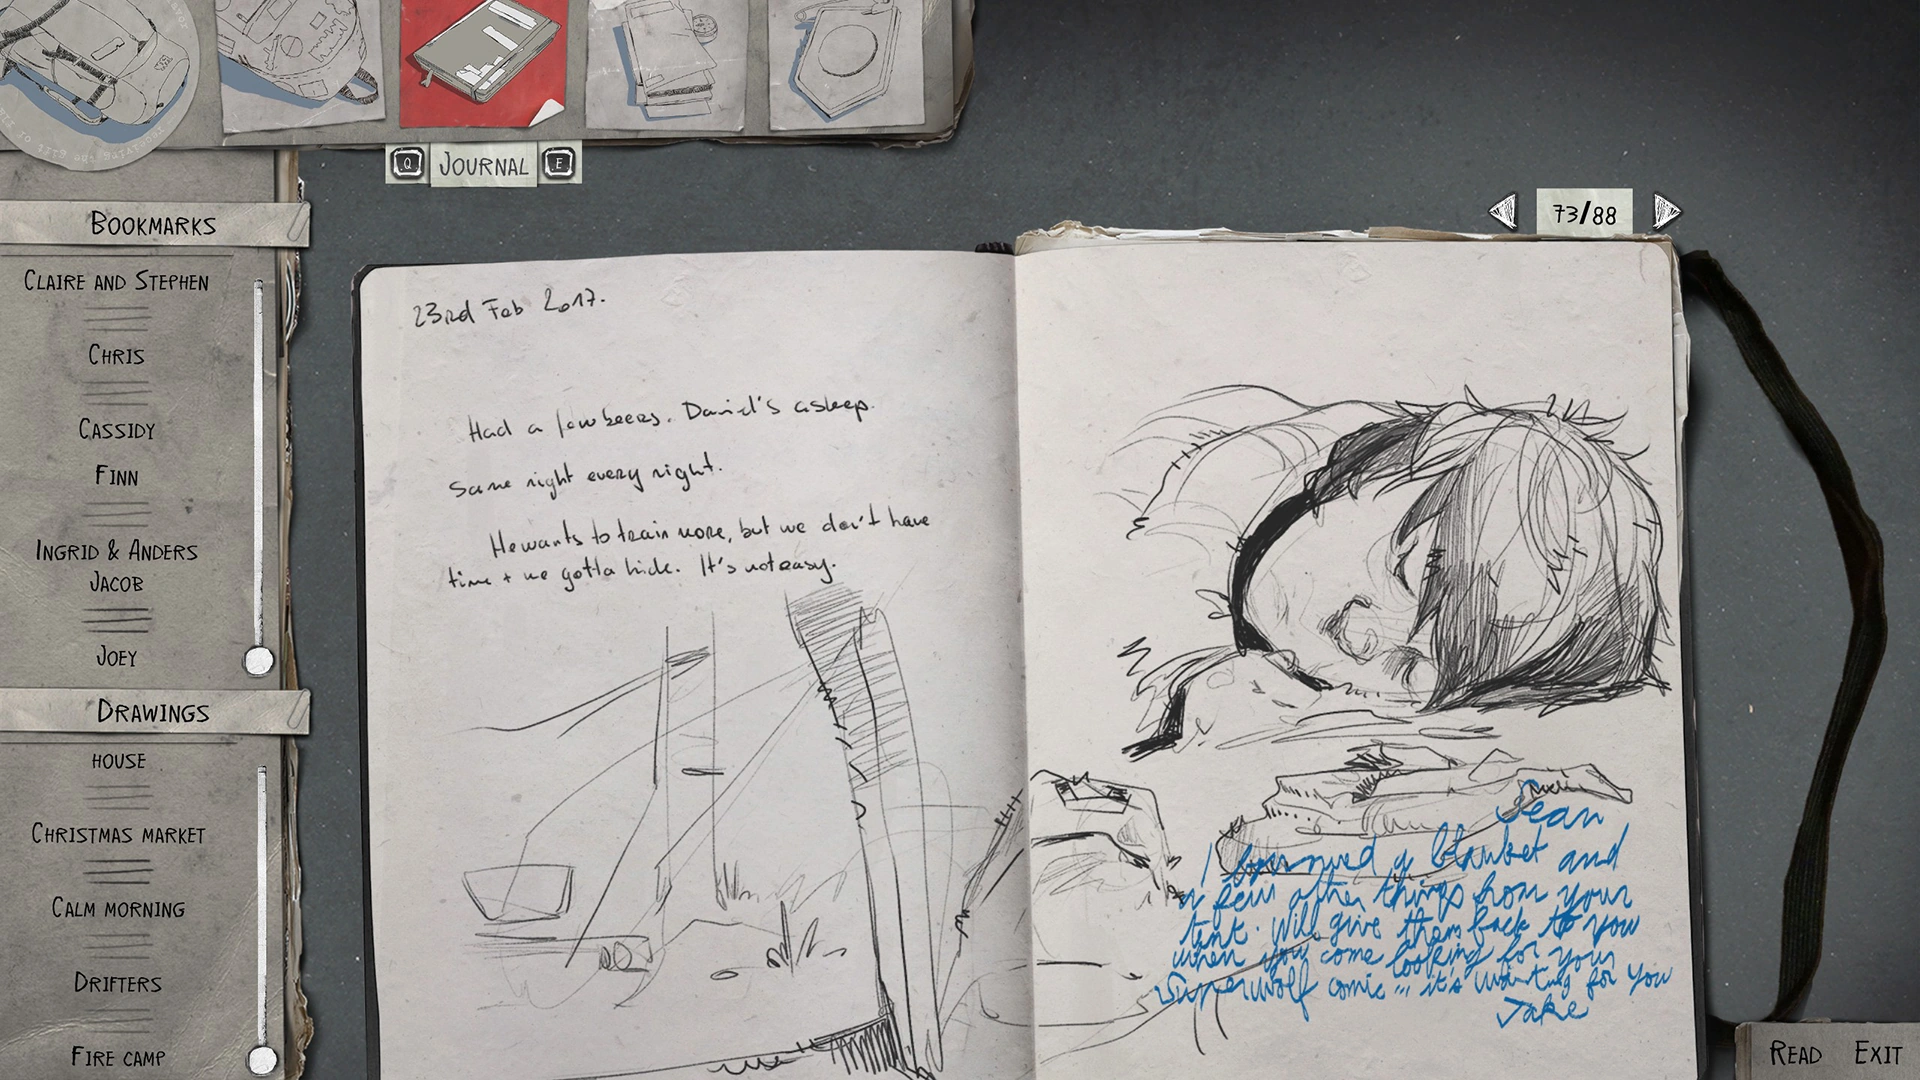 Q JOURNAL E
73/88
BOOKMARKS
CLAIRE AND STEPHEN
CHRIS
CASSIDY
FINN
INGRID & ANDERS
JACOB
JOEY
DRAWINGS
HOUSE
CHRISTMAS MARKET
CALM MORNING
DRIFTERS
FIRE CAMP
23rd Feb 2017.
Had a few beers. Daniel's asleep.
Same night every night.
He wants to train more, but we don't have
time + we gotta hide. It's not easy.
Sean
I borrowed a blanket and
a few other things from your
tent. Will give them back to you
when you come looking for your
Superwolf comic... it's waiting for you
Jake
READ EXIT